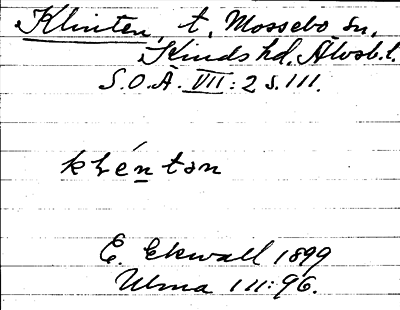 Klinten, t. Mossebo sn,
Kinds hd, Älvsb. l.
S.O.Ä. VII: 2 s. 111.
kléntən
E. Ekwall 1899
Ulma 111:96.